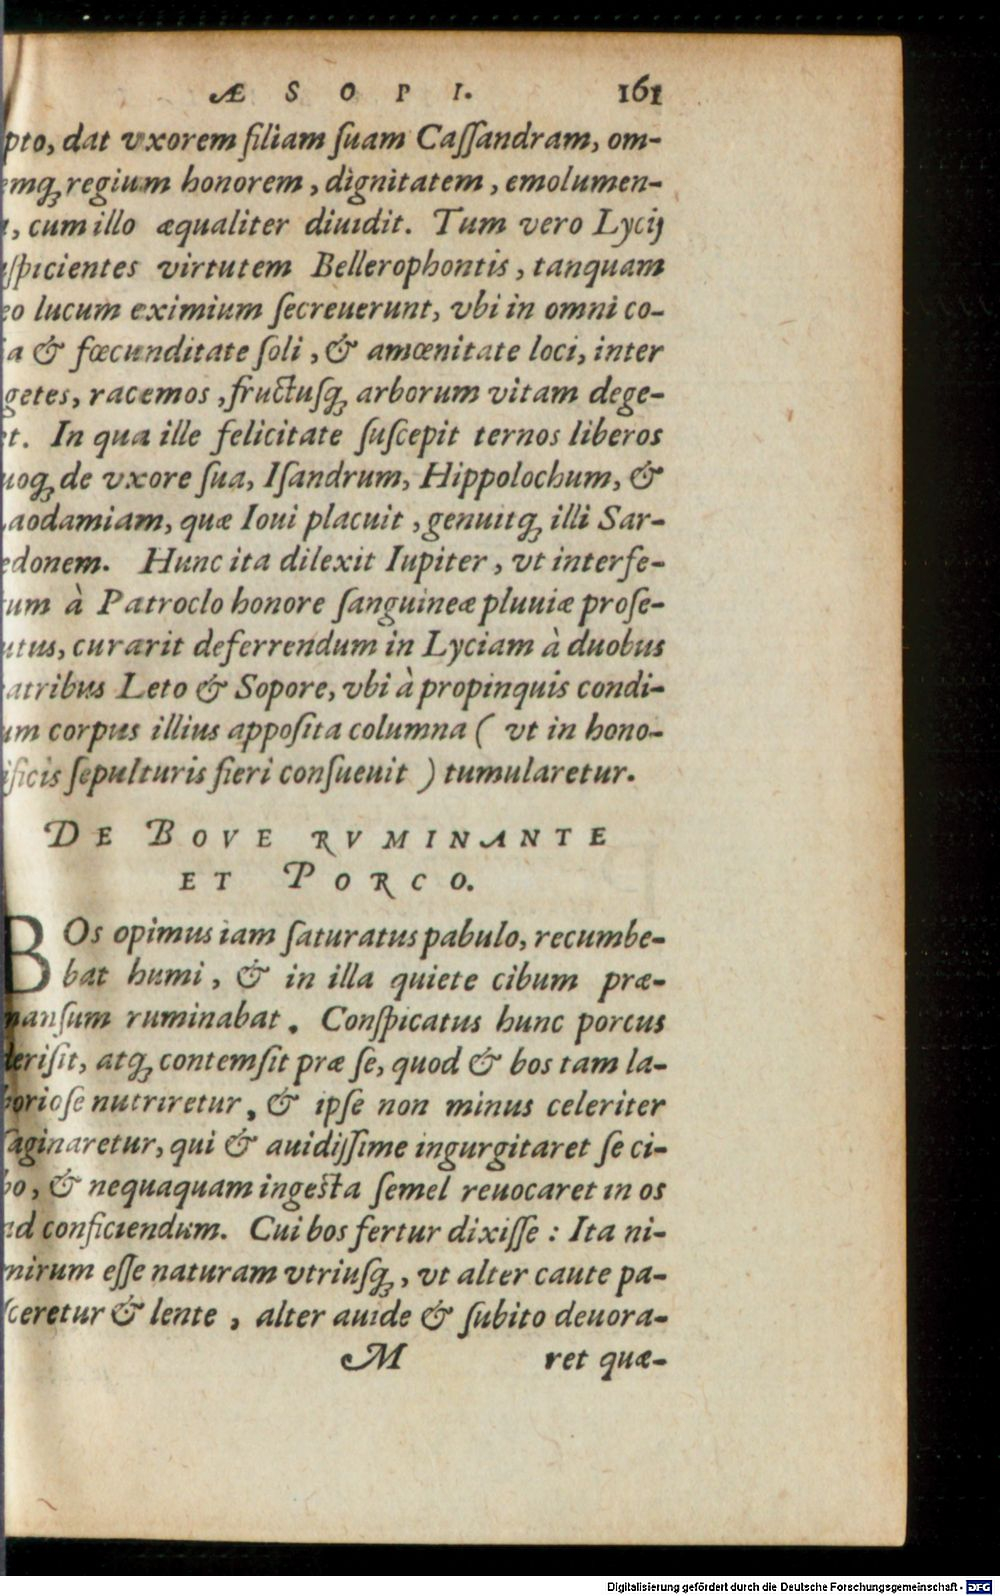 ÆSOPI. 161
pto, dat vxorem filiam ſuam Caſſandram, om-
emq́ regium honorem, dignitatem, emolumen-
, cum illo æqualiter diuidit. Tum vero Lycij
ſpicientes virtutem Bellerophontis, tanquam
eo lucum eximium ſecreuerunt, vbi in omni co-
ia & fœcunditate ſoli, & amœnitate loci, inter
getes, racemos, fructuſq́ arborum vitam dege-
et. In qua ille felicitate ſuſcepit ternos liberos
uoq́ de vxore ſua, Iſandrum, Hippolochum, &
aodamiam, quæ Ioui placuit, genuitq́ illi Sar-
edonem. Hunc ita dilexit Iupiter, vt interfe-
tum à Patroclo honore ſanguineæ pluuiæ proſe-
utus, curarit deferrendum in Lyciam à duobus
atribus Leto & Sopore, vbi à propinquis condi-
um corpus illius appoſita columna ( vt in hono-
ificis ſepulturis fieri conſueuit ) tumularetur.
DE BOVE RVMINANTE
ET PORCO.
BOs opimus iam ſaturatus pabulo, recumbe-
bat humi, & in illa quiete cibum præ-
manſum ruminabat. Conſpicatus hunc porcus
deriſit, atq́ contemſit præ ſe, quod & bos tam la-
borioſe nutriretur, & ipſe non minus celeriter
ſaginaretur, qui & auidiſſime ingurgitaret ſe ci-
bo, & nequaquam ingeſta ſemel reuocaret in os
ad conficiendum. Cui bos fertur dixiſſe : Ita ni-
mirum eſſe naturam vtriuſq́, vt alter caute pa-
ſceretur & lente, alter auide & ſubito deuora-
M ret quæ-
Digitalisierung gefördert durch die Deutsche Forschungsgemeinschaft - DFG